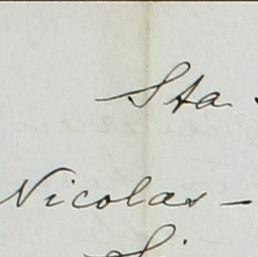 Sta.
Nicolas -